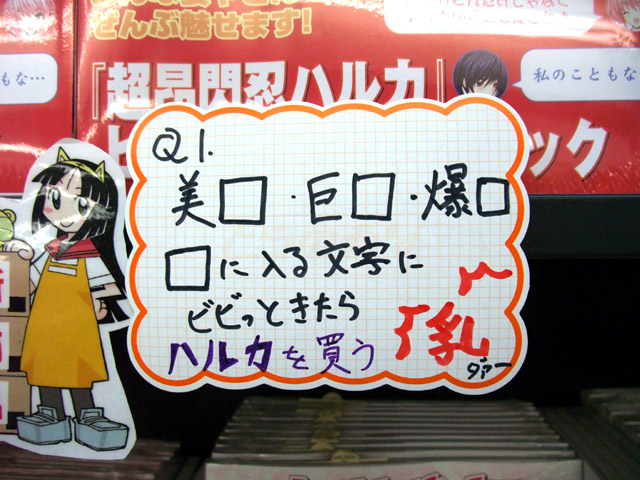 ぜんぶ魅せます!
『超昂閃忍ハルカ』
もな…
私のこともな
ック
Q1.
美□・巨□・爆□
□に入る文字に
ビビっときたら
ハルカを買う
「乳」
ダァー